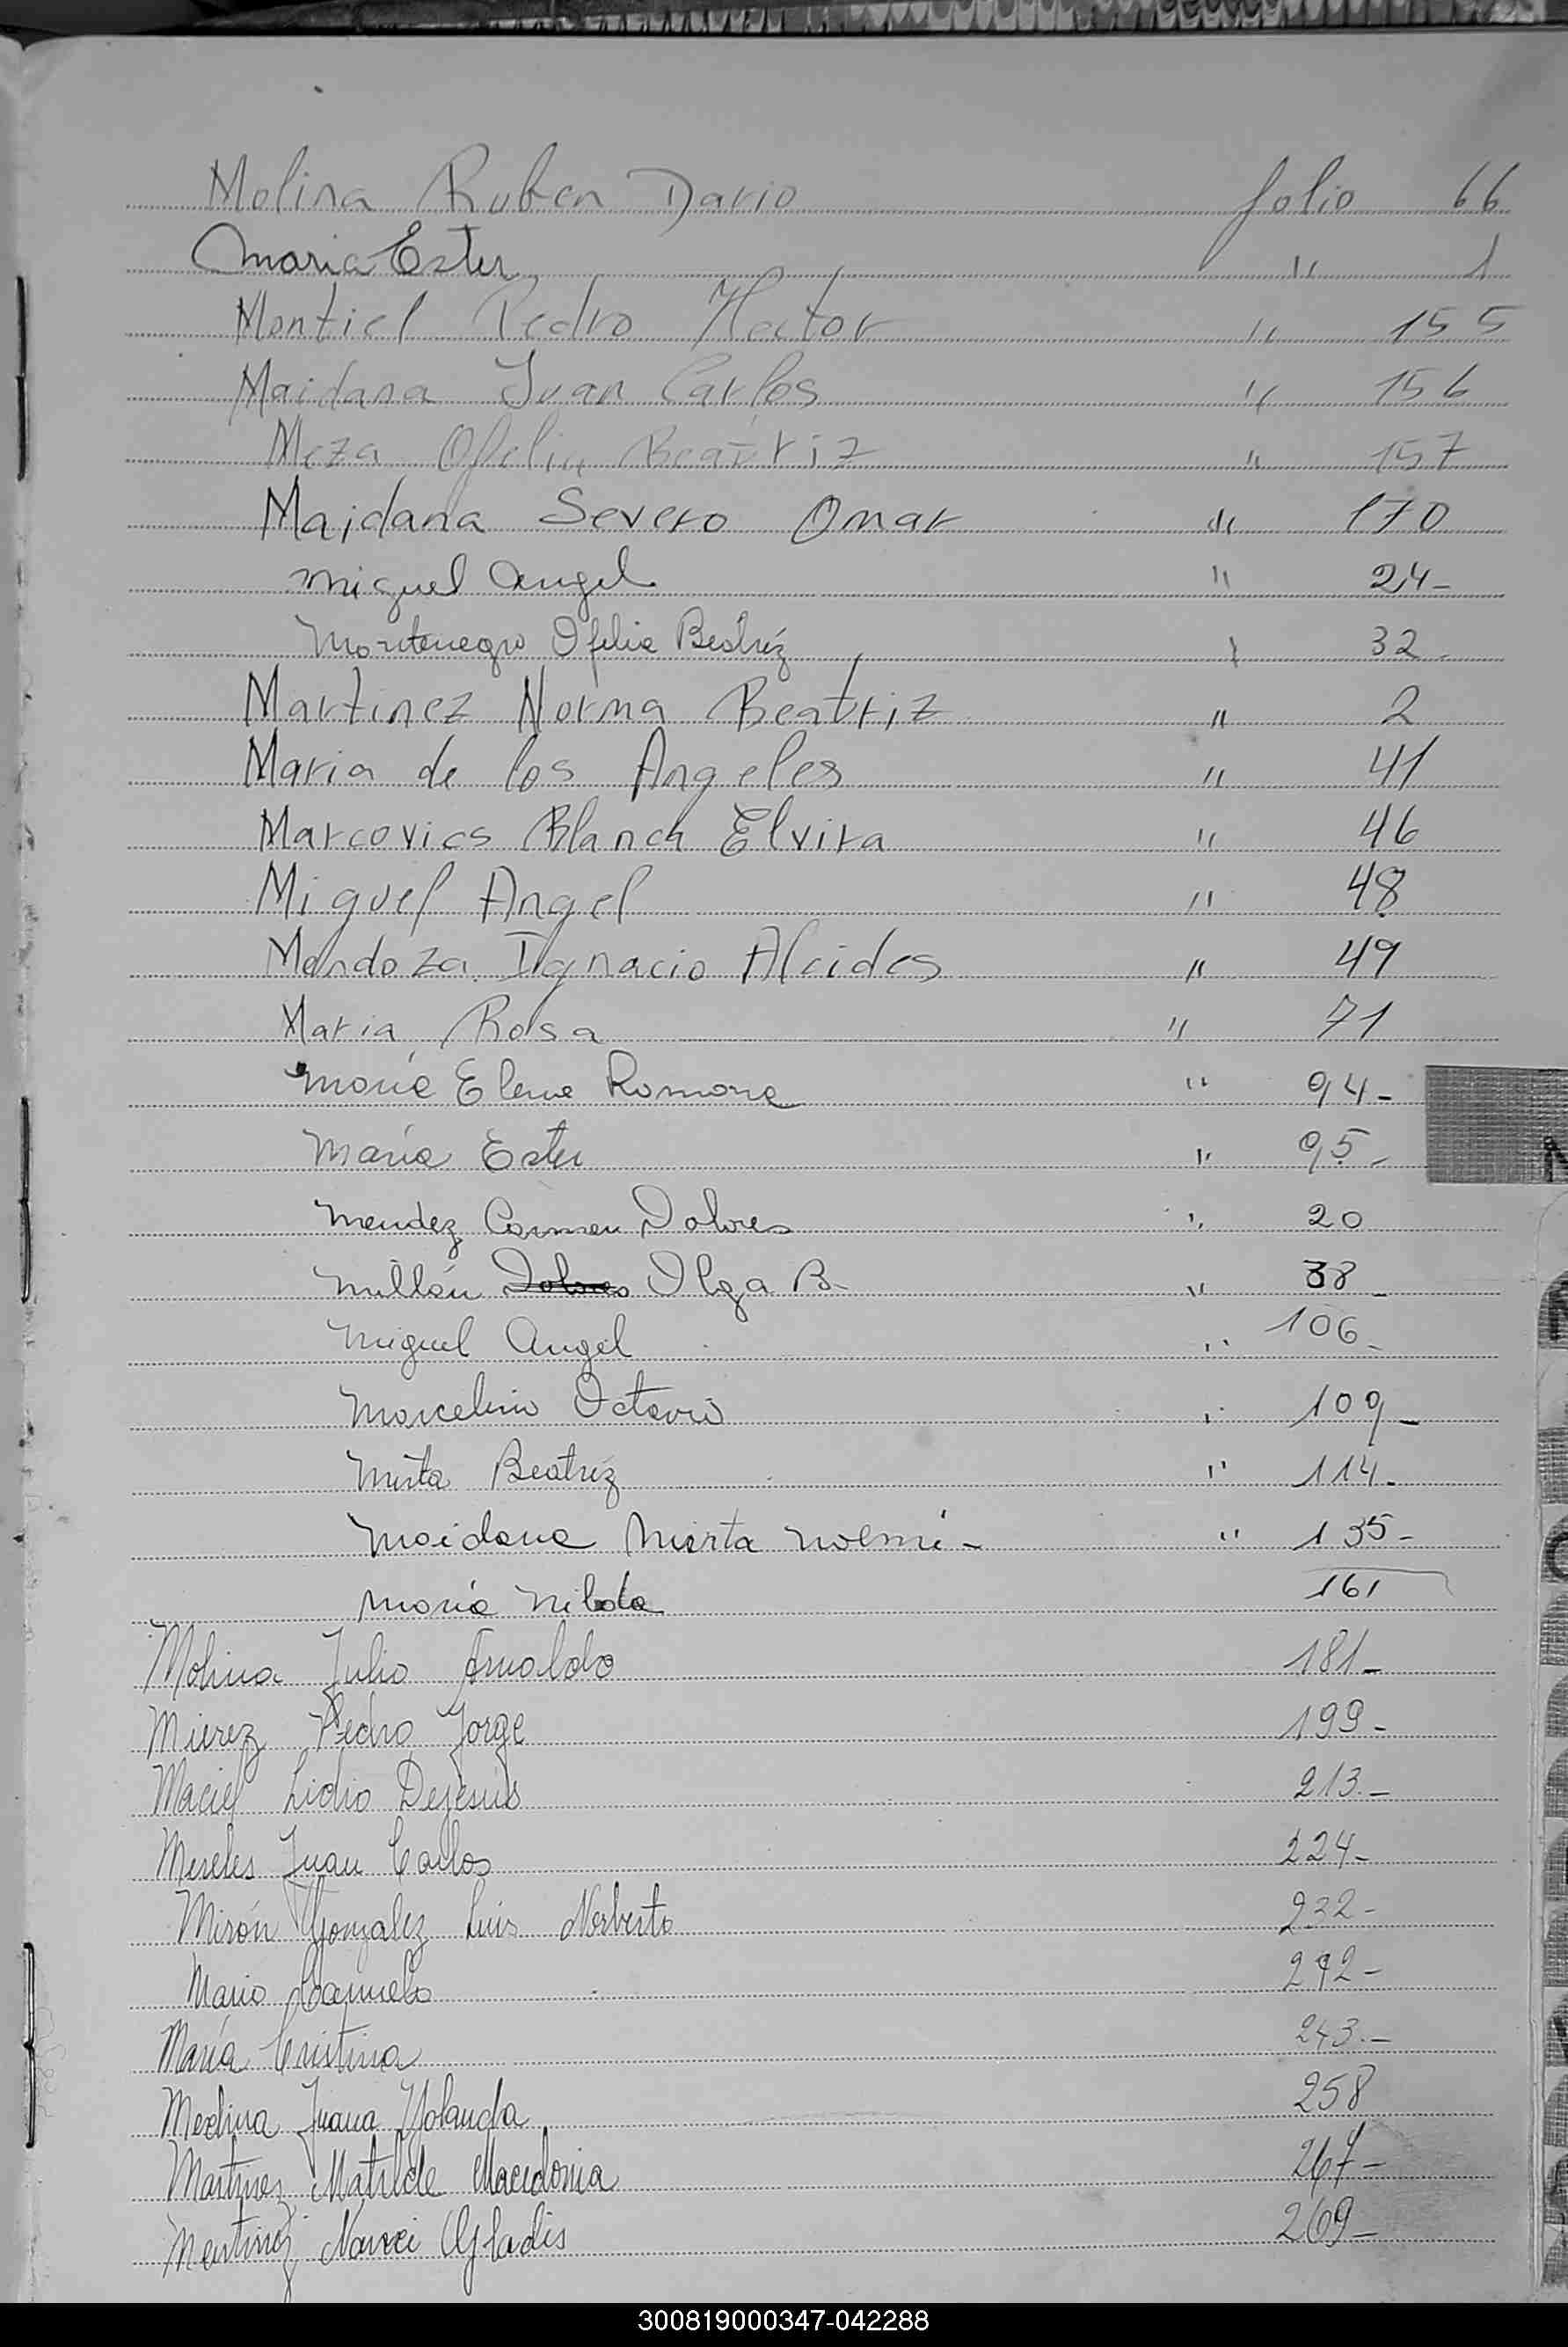 Molina Ruben Dario folio 66
Maria Ester " 1
Montiel Pedro Hector " 155
Maidana Juan Carlos " 156
Meza Ofelia Beatriz " 157
Maidana Severo Omar " 170
Miguel Angel " 24-
Montenegro Ofelia Beatriz " 32-
Martinez Norma Beatriz " 2
Maria de los Angeles " 41
Marcovics Blanca Elvira " 46
Miguel Angel " 48
Mendoza Ignacio Alcides " 49
Maria Rosa " 71
María Elena Romana " 94-
María Ester " 95-
Mendez Carmen Dolores " 20
Millán Dolores Olga B- " 38-
Miguel Angel " 106-
Marcelino Octavio " 109-
Mirta Beatríz " 114-
Maidana Mirta Noemí- " 135-
María 161
Molina Julio Arnaldo 181-
Mierez Pedro Jorge 199-
Maciel Lidio Dejesús 213.-
Meseles Juan Carlos 224-
Mirón Gonzalez Luis Norberto 232-
Mario 242-
María Cristina 243.-
Medina Juana Yolanda 258
Martinez Matilde Macedonia 267-
Martinez Gladis 269-
N
300819000347-042288